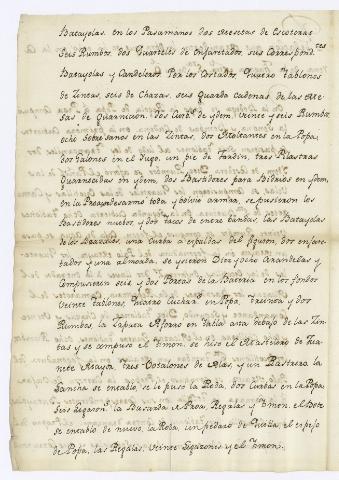 Batayolas, en los Pasamanos dos Mesetas de Escoteras
Seis Rumbos, dos Quarteles de Enjaretados, sus Correspond.tes
Batayolas y Candeleros Por los Costados Nuevo Tablones
de Zintas, seis de Chazas, seis Guarda cadenas de las Me-
sas de Guarnicion, dos Curb.s de ydem, Veinte y seis Rumbos
ocho Sobresanos en las Zintas, dos en la Popa,
dos Galones en el Yugo, un pie de Jardin, tres Pilastras
Guarnecidas en ydem, dos Bastidores para Bidrios en ydem,
En la Proa y desarmo toda y bolvio a armar, se pusieron los
Bastidores nuebos, y dos tacos de entre bandas, las Batayolas
de los Beaxales, una Curba a espaldas del figuron, dos enjare-
tados y una almoada, se ysieron Diez y ocho Arandelas y
Compusieron seis y dos Portas de la Bateria en los fondos
Veinte Tablones, Quatro Cuchar. en Popa, treinta y dos
Rumbos, la Zapata Aforro en falso asta debajo de las Zin-
tas y se compuso el timon, se hiso el Mastelero de Jua-
nete Mayor, tres Botalones de Alas, y un Rastrero. la
Lancha se entablo, se le puso la Roda, dos Curbas en la Popa,
Seis ligazon.s la Busarda a Proa, Regalas y timon, el Bote
se entablo de nuevo, la Roda, un pedazo de Quilla, el espejo
de Popa, las Regalas, veinte Ligazones y el timon.